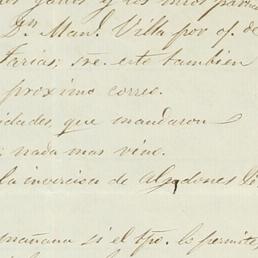 Dn. Man. Villa por of. de
Farias; sre. esto tambien
proximo correo.
idades, que mandaron
nada mas vino.
la inversion de Algodones
mañana si el tpo. lo permite